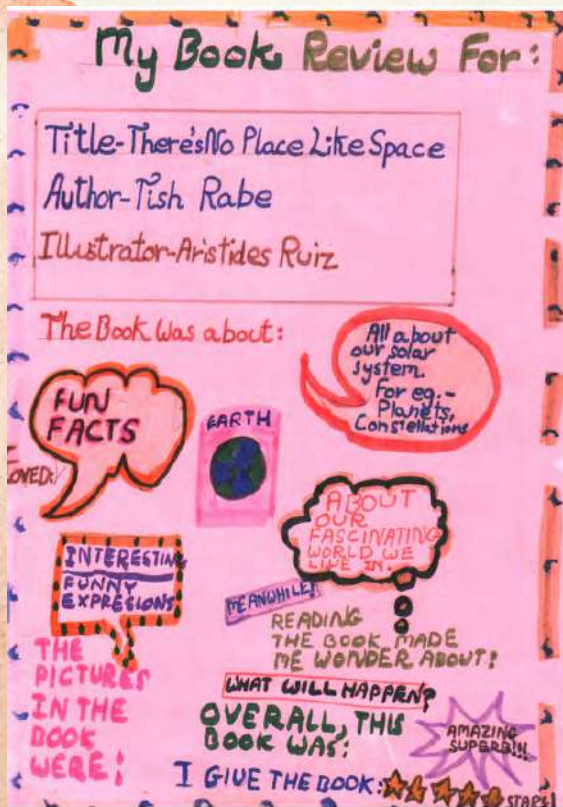 My Book Review For:
Title-There'sNo Place Like Space
Author-Tish Rabe
Illustrator-Aristides Ruiz
The Book Was about:
All about
our solar
system.
For eg.-
Planets,
Constellations
FUN
FACTS
EARTH
OVED:
ABOUT
OUR
FASCINATING
WORLD WE
LIVE IN.
INTERESTING
FUNNY
EXPRESIONS
MEANWHILE!
READING
THE BOOK MADE
ME WONDER ABOUT:
THE
PICTURES
IN THE
BOOK
WERE:
WHAT WILL HAPPEN?
OVERALL, THIS
BOOK WAS:
AMAZING
SUPERB!!!
I GIVE THE BOOK:
STARS!